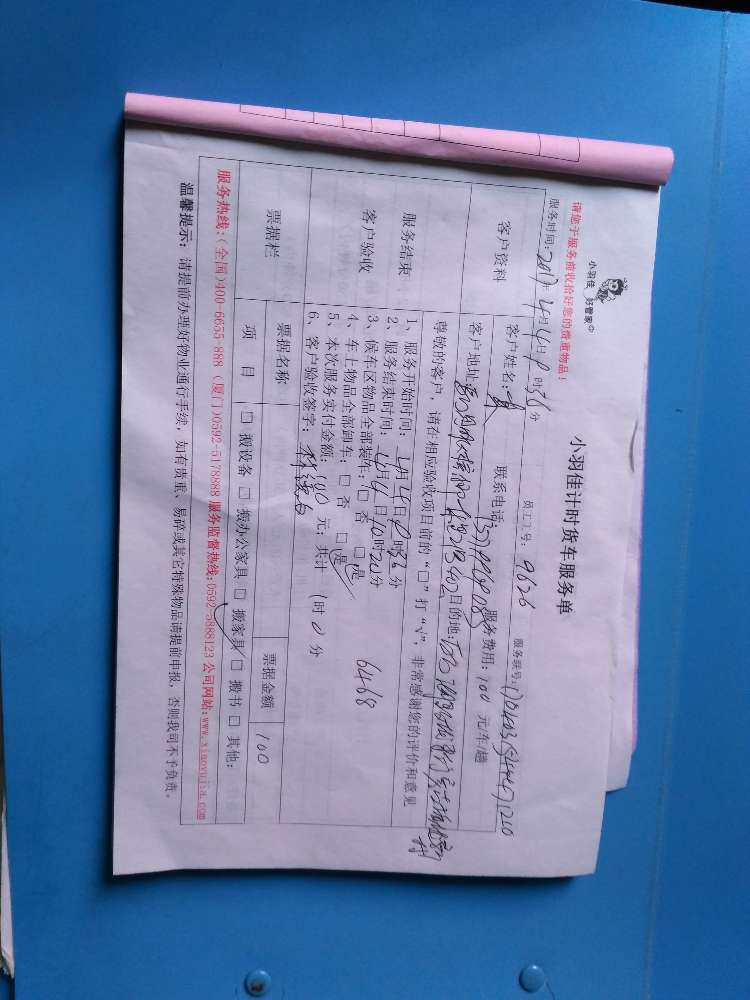 小羽佳 好管家
小羽佳计时货车服务单
请您于服务前收拾好您的贵重物品！
员工工号：9626 服务联号：
服务时间：2017年4月4日9时36分
客户资料
客户姓名： 联系电话： 服务费用：100元/车/趟
客户地址： 目的地：
尊敬的客户，请在相应验收项目前的“□”打“√”，非常感谢您的评价和意见
服务结束
客户验收
1、服务开始时间：4月4日9时36分
2、服务结束时间：4月4日10时20分
3、候车区物品全部装车：□否 □是
4、车上物品全部卸车：□否 □是
5、本次服务实付金额：100元；共计1时0分
6、客户验收签字：
6468
票据栏
票据名称 票据金额 100
项目 □搬设备 □搬办公家具 □搬家具 □搬书 □其他：
服务热线：(全国)400-6655-888 (厦门)0592-5178888 服务监督热线：0592-5888123 公司网站：www.xiaoyujia.com
温馨提示：请提前办理好物业通行手续，如有贵重、易碎或其它特殊物品请提前申报，否则我司不予负责。